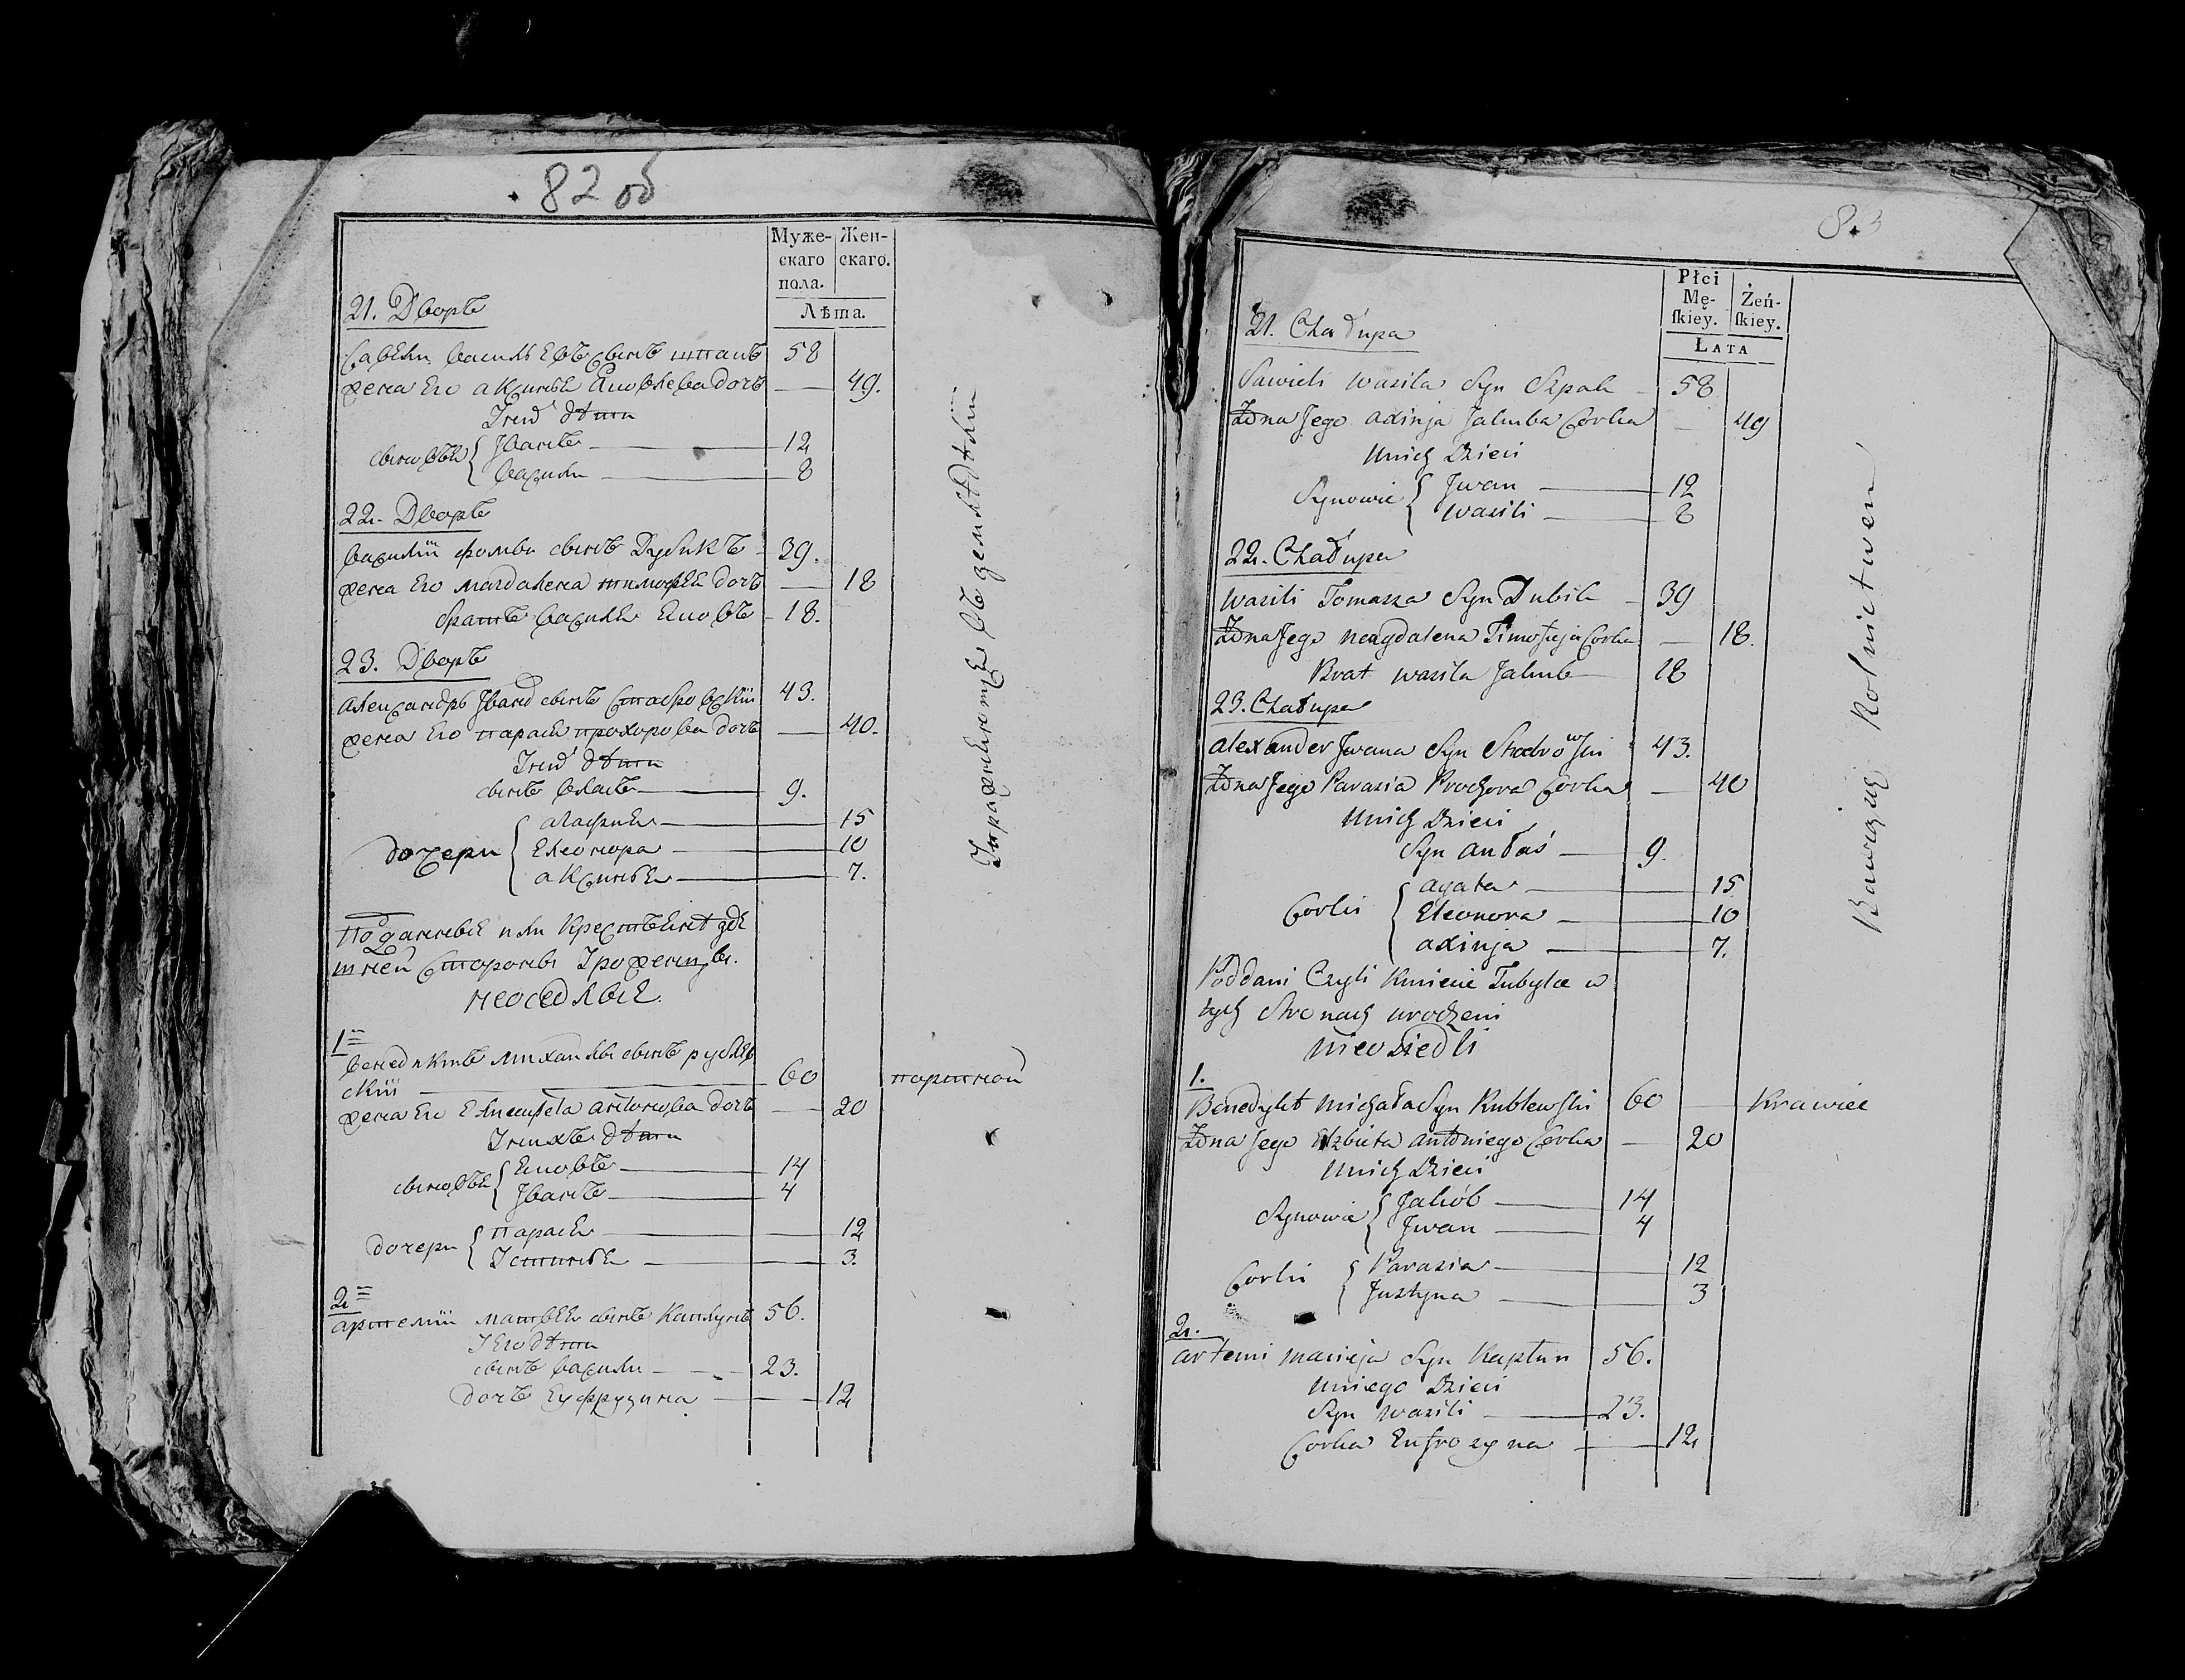 82 об
Муже-
скаго
пола.
Жен-
скаго.
Лѣта.
21. Дворъ
Савели Василь евъ сынъ шпакъ 58
жена Его аксинья Яковлева дочъ — 49.
дѣти
сыновья { Иванъ — 12
Васили — 8
22. Дворъ
Василiй фомы сынъ Дубикъ 39.
жена Его магдалена тимофея дочъ — 18
братъ василья Яковъ — 18.
23. Дворъ
александръ Ивана сынъ Стабровскiй 43.
жена Его парася прохорова дочъ — 40.
дѣти
сынъ Власъ — 9.
дочери { агафия — 15
Елеонора — 10
аксинья — 7.
Подданныя или Крестьянѣ здѣ
шней стороны
неоседлыя.
1
бенедиктъ михайлы сынъ рублев
скiй — 60 портной
жена Его Елисавета антонова дочъ — 20
дѣти
сыновья { Яковъ — 14
Иванъ — 4
дочери { парася — 12
Юстинья — 3.
2
артемiй матвея сынъ Каплунъ 56.
дѣти
сынъ Васили — 23.
дочъ Еуфрузина — 12
Упражняются въ земледѣлiи
83
Płci
Mę-
ſkiey.
Żeń-
ſkiey.
ŁATA
21. Chałupa
Sawieli Wasila Syn Szpak 58
Żona Jego axinja Jakuba Corka — 49
Unich Dzieci
Synowie { Jwan — 12
Wasili — 8
22. Chałupa
Wasili Tomasza Syn Dubik — 39
Żona Jego Magdalena Timofieja Corka — 18.
Brat wasila Jakub — 18
23. Chałupa
Alexander Jwana Syn Stabrowſki 43.
Żona Jego Parasia Prochora Corka — 40
Unich Dzieci
Syn — 9.
Corki { agata — 15
Eleonora — 10
axinja — 7.
Poddani Czyli Kmiecie Tubylce w
tych Stronach urodzeni
nieosiedli
1.
Benedykt Michała Syn Rublewſki 60 — Krawiec
Żona Jego Elzbieta antoniego Corka — 20
Unich Dzieci
Synowie { Jakób — 14
Jwan — 4
Corki { Parasia — 12
Justyna — 3
2.
artemi Macieja Syn Kapłun 56.
Uniego Dzieci
Syn Wasili — 23.
Corka Eufrozyna — 12
Bawią się Rolnictwem